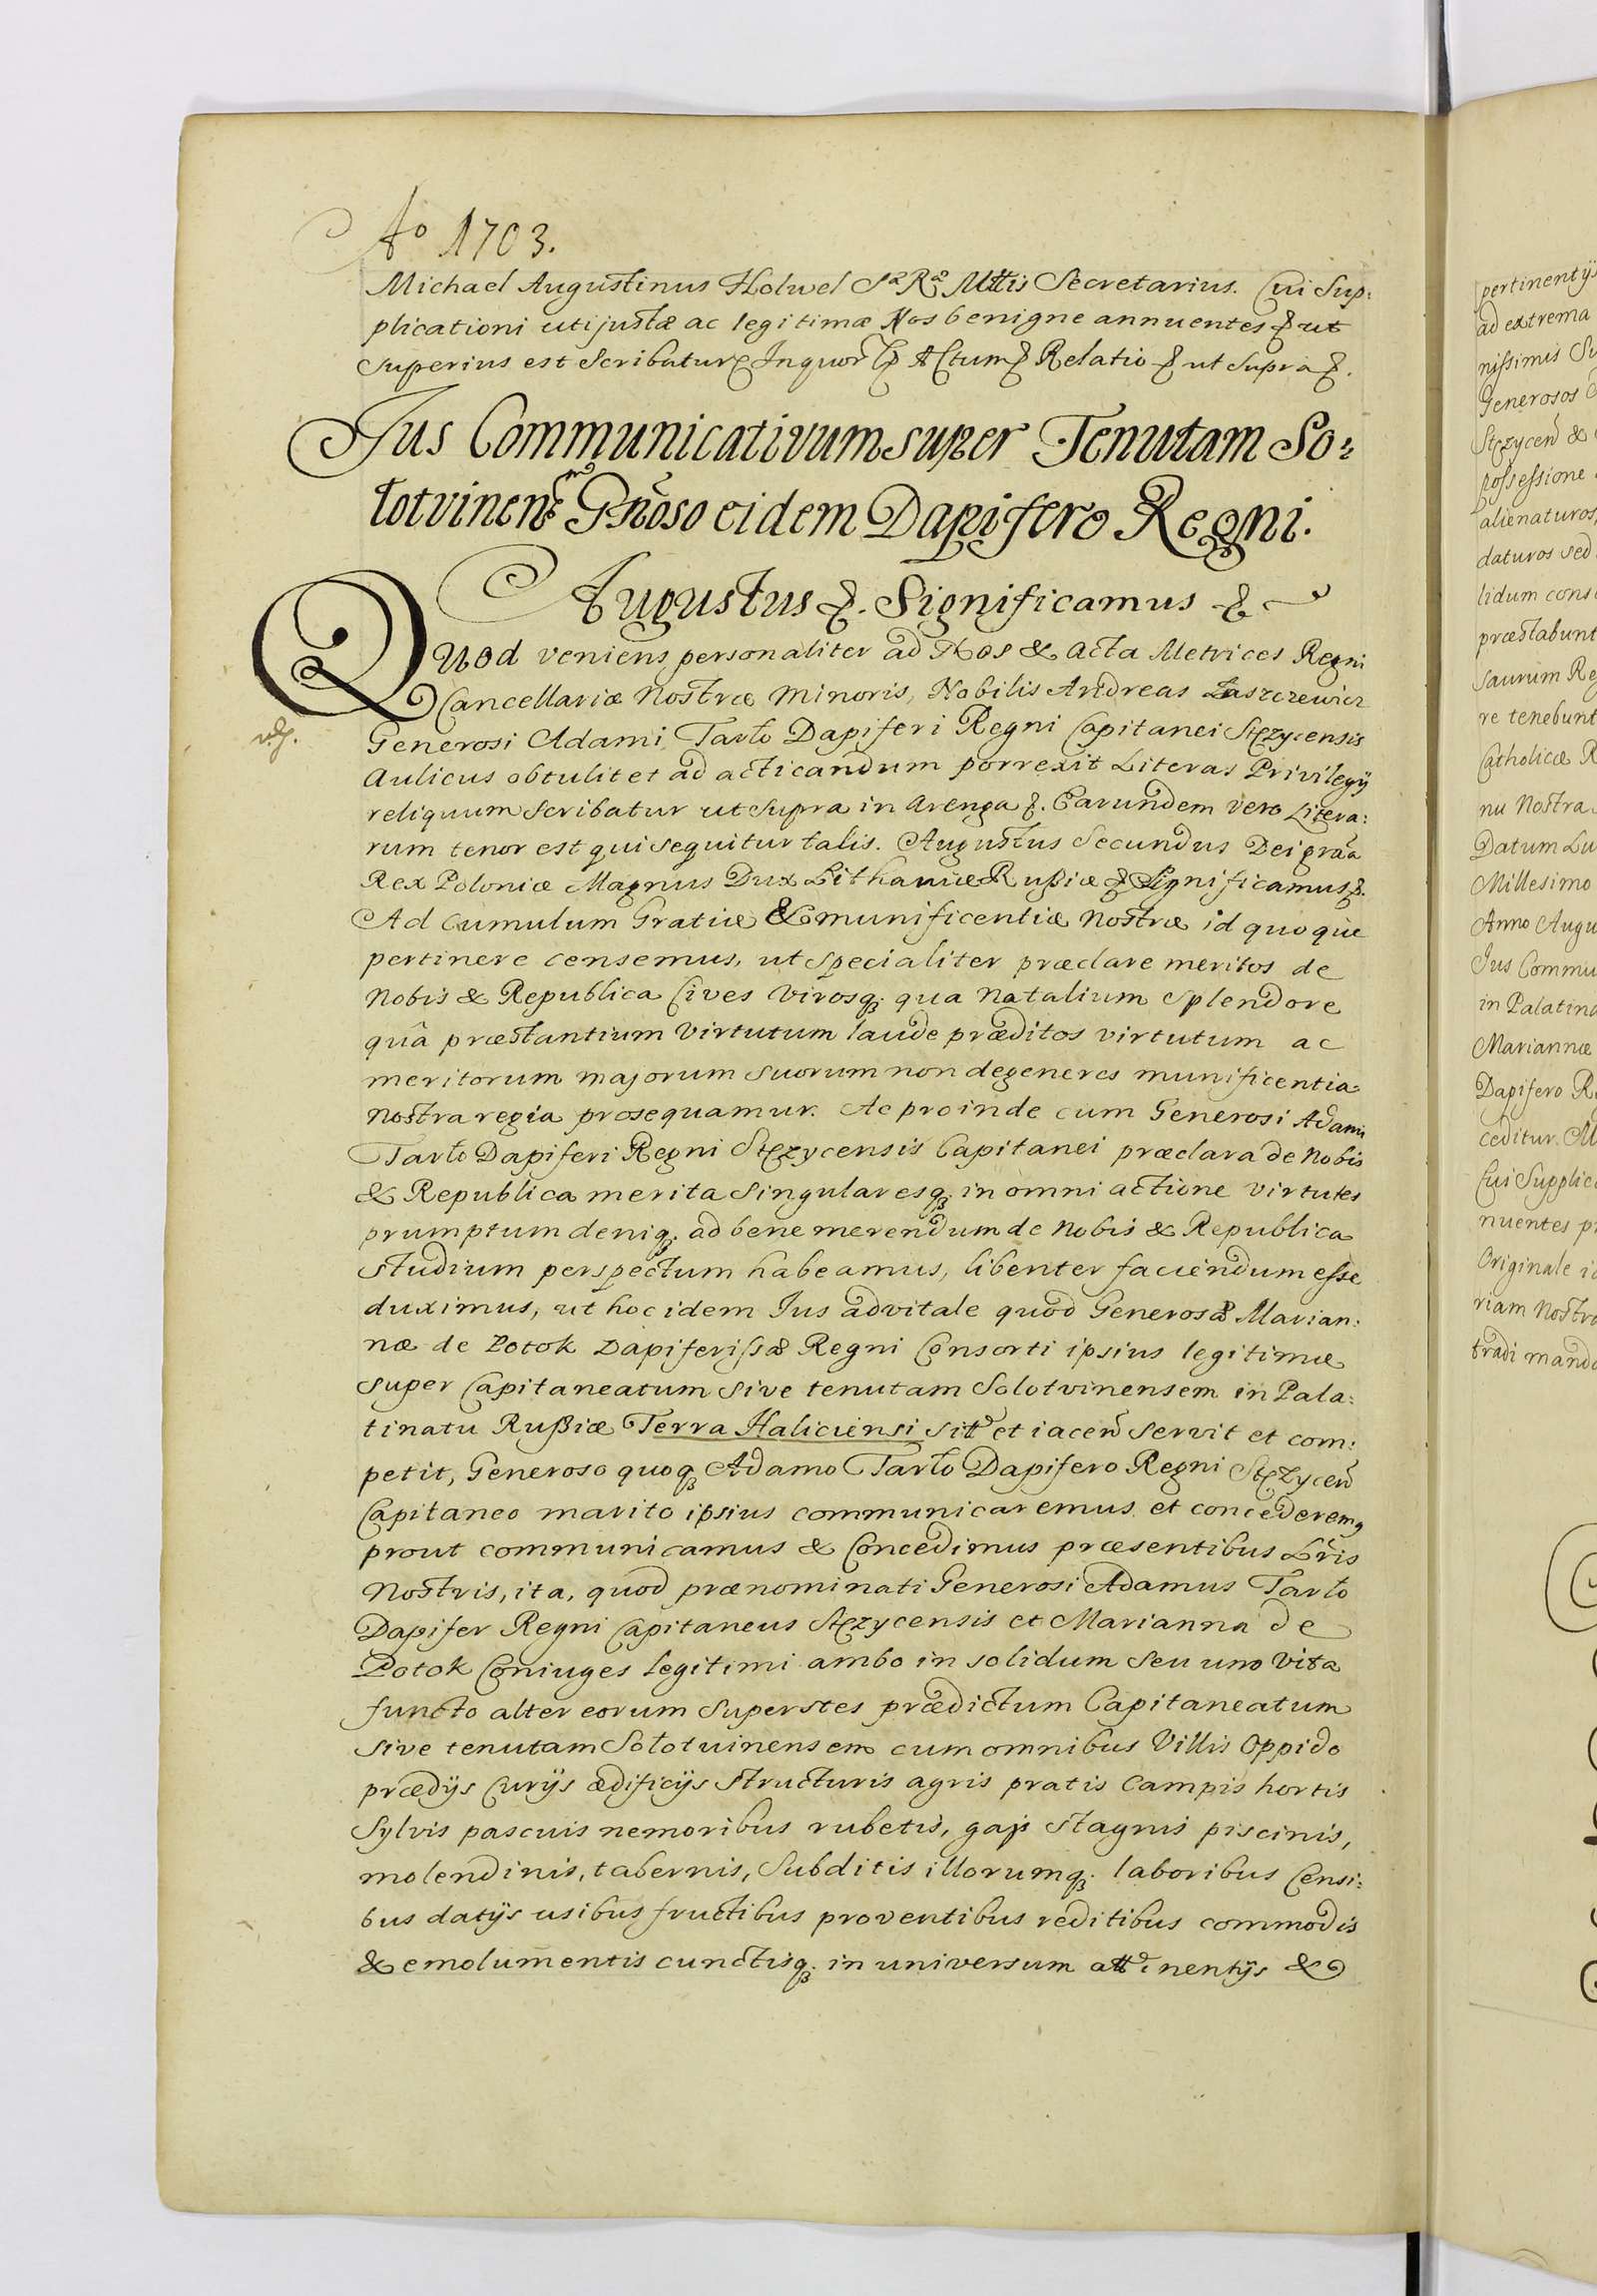 Ao 1703.
Michael Augustinus Holwel Sæ Ræ Mttis Secretarius. Cui Sup:
plicationi uti justæ ac legitimæ Nos benigne annuentes & ut
superius est scribatur & Inquor. Actum & Relatio & ut supra &.
Jus Communicativum super Tenutam So:
lotvinensem Gnoso eidem Dapifero Regni.
Augustus &. Significamus &
Quod veniens personaliter ad Nos & Acta Metrices Regni
Cancellariæ Nostræ Minoris, Nobilis Andreas Łaszczewicz
Generosi Adami Tarło Dapiferi Regni Capitanei Stęzycensis
Aulicus obtulit et ad acticandum porrexit Literas Privilegÿ
reliquum scribatur ut supra in Arenga &. Earundem vero Litera:
rum tenor est qui sequitur talis. Augustus Secundus Dei graa
Rex Poloniæ Magnus Dux Lithaniæ Rußiæ & Significamus &.
Ad cumulum Gratiæ & munificentiæ Nostræ id quoque
pertinere censemus, ut specialiter præclare meritos de
Nobis & Republica Cives Virosq; qua Natalium splendore
quâ præstantium Virtutum laude præditos virtutum ac
meritorum majorum suorum non degeneres munificentia
Nostra regia prosequamur. Ac proinde cum Generosi Adami
Tarło Dapiferi Regni Stęzycensis Capitanei præclara de Nobis
& Republica merita singularesq; in omni actione virtutes
prumptum deniq; ad bene merendum de Nobis & Republica
studium perspectum habeamus, libenter faciendum esse
duximus, ut hoc idem Jus advitale quod Generosæ Marian:
næ de Potok Dapiferissæ Regni Consorti ipsius legitimæ
super Capitaneatum sive tenutam Solotvinensem in Pala:
tinatu Rußiæ Terra Haliciensi sitt et iacen servit et com:
petit, Generoso quoq; Adamo Tarło Dapifero Regni Stęzycen
Capitaneo marito ipsius communicaremus et concederemq
prout communicamus & Concedimus præsentibus Lris
Nostris, ita, quod prænominati Generosi Adamus Tarło
Dapifer Regni Capitaneus Stęzycensis et Marianna de
Potok Coniuges legitimi ambo in solidum seu uno vita
functo alter eorum superstes prædictum Capitaneatum
sive tenutam Sołotuinensem cum omnibus Villis Oppido
prædÿs Curÿs ædificÿs structuris agris pratis Campis hortis
Sylvis pascuis nemoribus rubetis, gajs stagnis piscinis,
molendinis, tabernis, Subditis illorumq; laboribus Censi:
bus datÿs usibus fructibus proventibus reditibus commodis
& emolumentis cunctisq; in universum attinentÿs &
pertinentÿs
ad extrema
nissimis
Generosos
Stęzycen &
possessione
alienaturos,
daturos sed
lidum
præstabunt
saurum
re tenebunt
Catholicæ
nu Nostra
Datum
Millesimo
Anno
Jus
in
Mariannæ
Dapifero
ceditur.
Cui
nuentes
Originale
riam
tradi